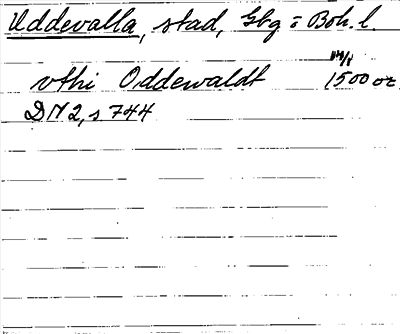 Uddevalla, stad, Gbg o Boh. l.
vthi Oddewaldt 1500 or.
DN 2, s 744